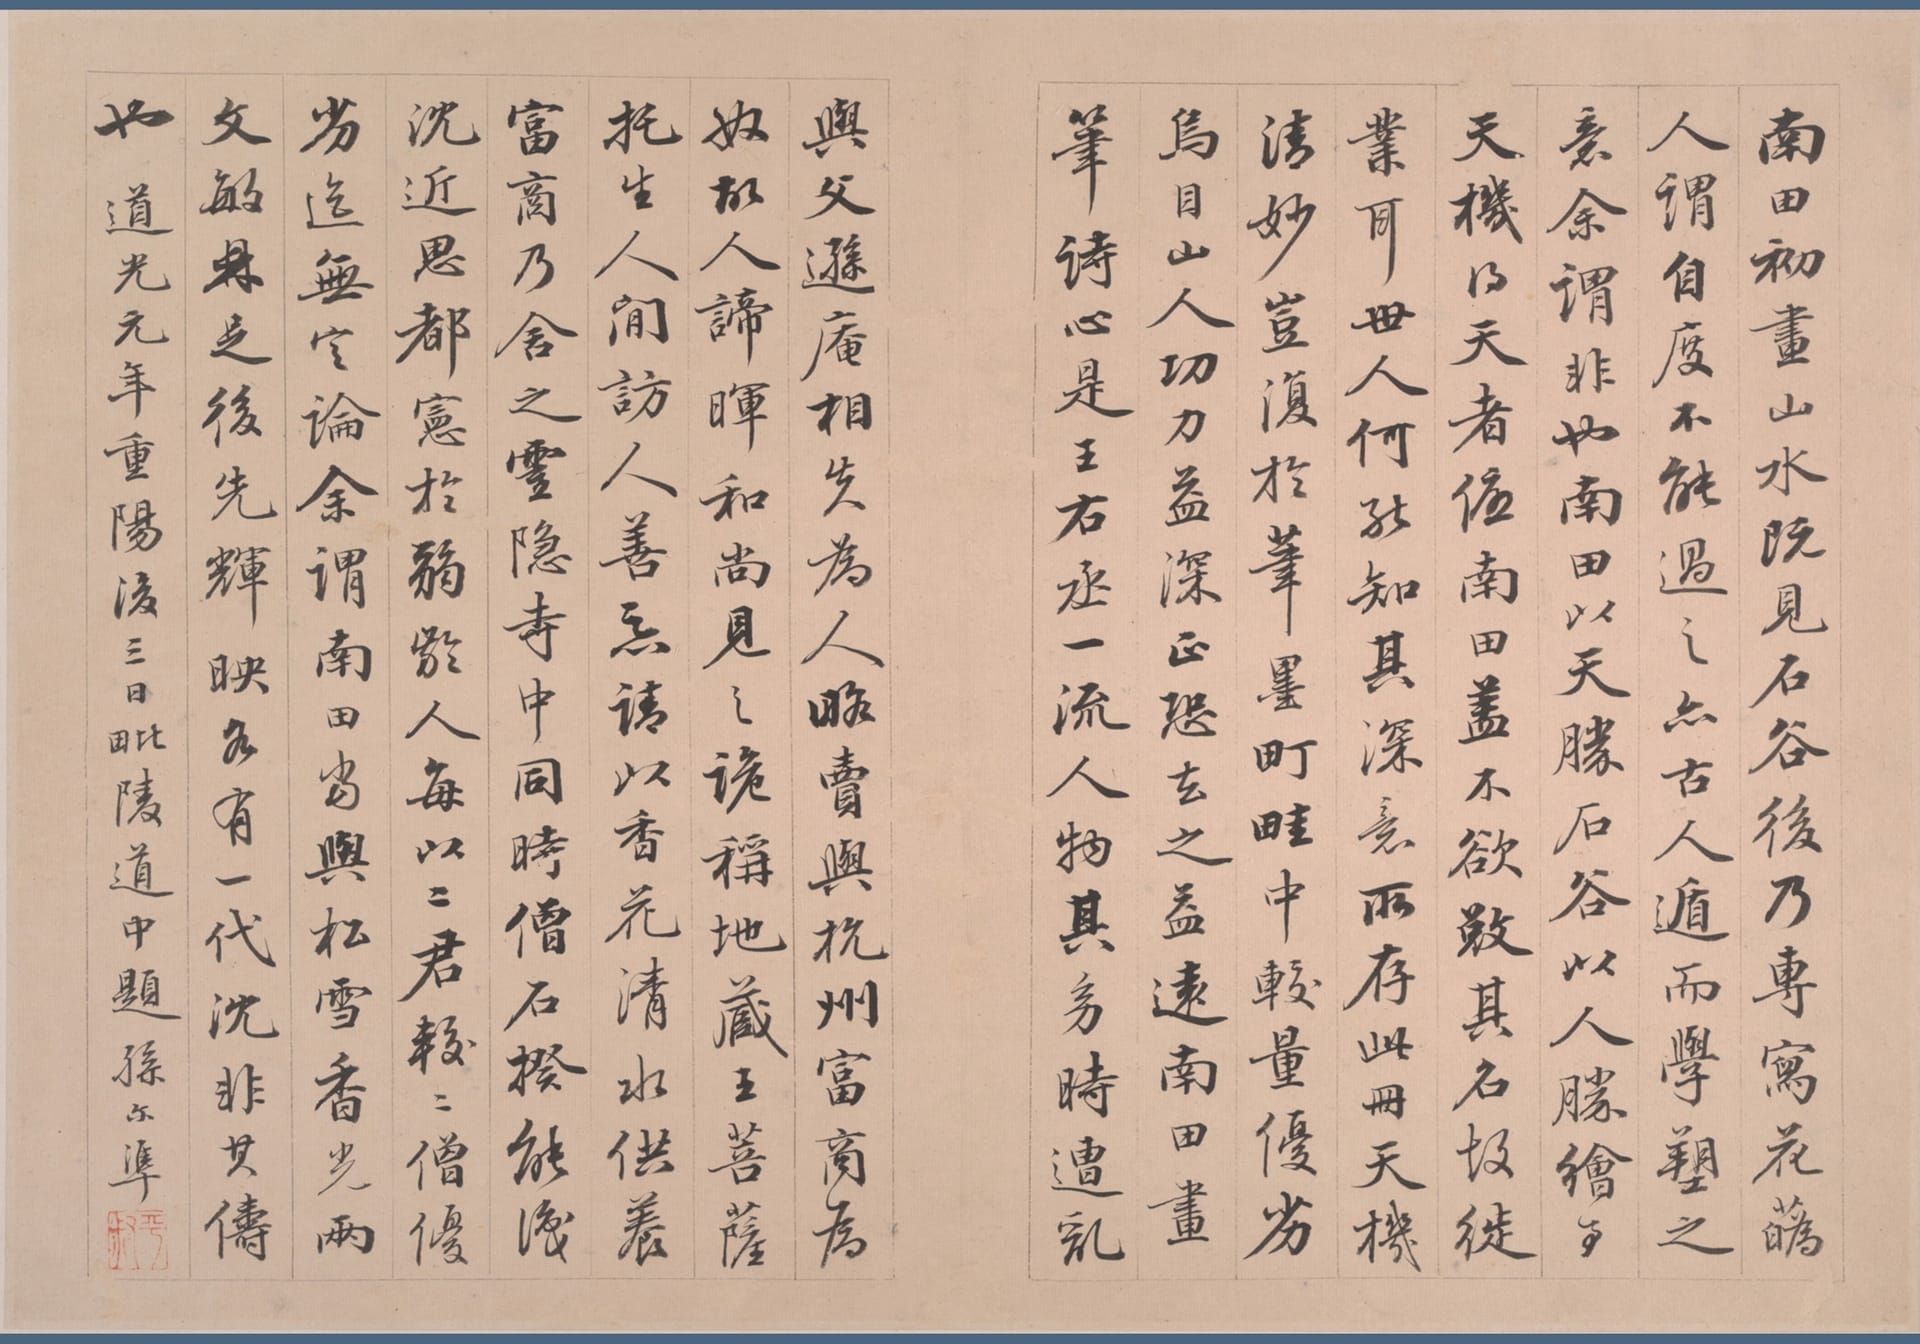 南田初畫山水既見石谷後乃專寫花蘤
人謂自度不能過之亦古人遁而學塑之
意余謂非也南田以天勝石谷以人勝繪事
天機得天者優南田蓋不欲敚其名故徙
業耳世人何能知其深意所存此冊天機
清妙豈復於筆墨町畦中較量優劣
烏目山人功力益深正恐去之益遠南田畫
筆詩心是王右丞一流人物其時遭亂
與父遜庵相失為人略賣與杭州富商為
奴故人諦暉和尚見之詭稱地藏王菩薩
托生人間訪人善惡請以香花清水供養
富商乃舍之靈隱寺中同時僧石揆能識
沈近思都憲於弱齡人每以二君較二僧優
劣迄無定論余謂南田當與松雪香光兩
文敏鼎足後先輝映各有一代沈非其儔
也 道光元年重陽後三日毗陵道中題 孫尔準
平叔